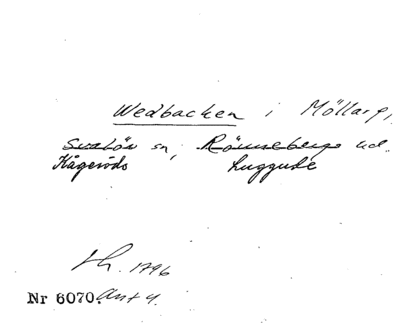 Wedbacken i Möllarp,
Svalöv sn, Rönnebergs hd.
Kågeröds Luggude
h. 1796
Nr 6070. Ant 4.